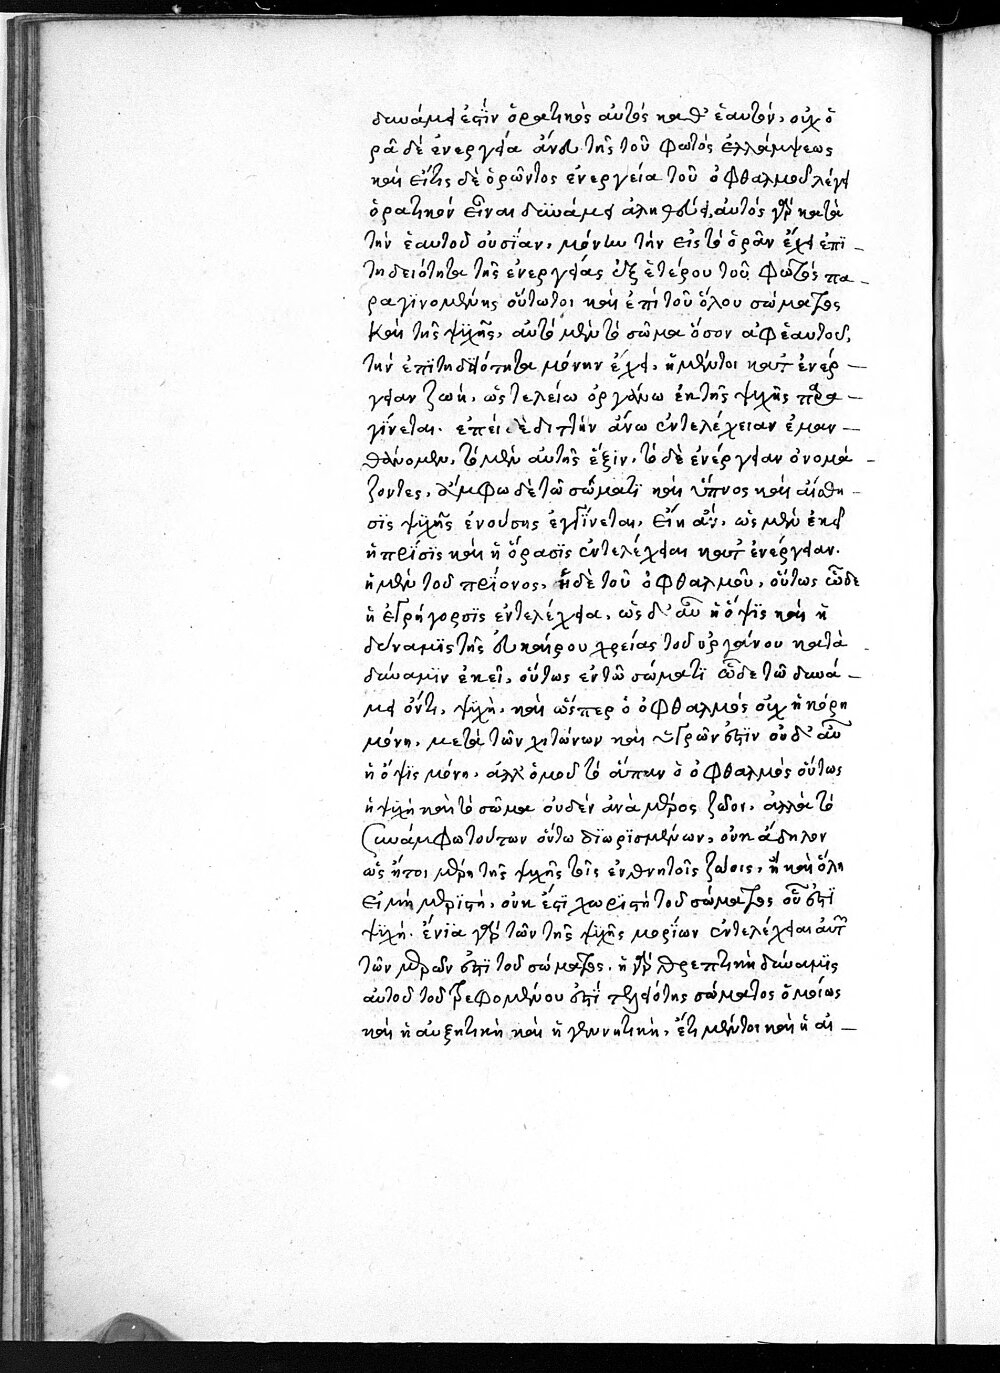 δυνάμει ἐστὶν ὁρατικὸς αὐτὸς καθ' ἑαυτόν, οὐχ ὁ
ρᾶ δὲ ἐνεργεία ἄνευ τῆς τοῦ φωτὸς ἐλλάμψεως
καὶ εἴτις δὲ ὁρῶντος ἐνεργεία τοῦ ὀφθαλμοῦ λέγει
ὁρατικὸν εἶναι δυνάμει ἀληθεύει, αὐτὸς γὰρ κατὰ
τὴν ἑαυτοῦ οὐσίαν, μόνην τὴν εἰς τὸ ὁρᾶν ἔχει ἐπι –
τηδειότητα τῆς ἐνεργείας ἐξ ἑτέρου τοῦ φωτὸς πα –
ραγινομένης οὕτω τοι καὶ ἐπὶ τοῦ ὅλου σώματος
καὶ τῆς ψυχῆς, αὐτὸ μὲν τὸ σῶμα ὅσον ἀφ ἑαυτοῦ,
τὴν ἐπιτηδειότητα μόνην ἔχει, ἡ μέντοι κατ ἐνέρ –
γειαν ζωὴ, ὡς τελείω ὀργάνω ἐκ τῆς ψυχῆς παρα –
γίνεται. ἐπεὶ δὲ διττὴν ἄνω ἐντελέχειαν ἐμαν –
θάνομεν, τὸ μὲν αὐτῆς ἕξιν, τὸ δὲ ἐνέργειαν ὀνομά –
ζοντες, ἄμφω δὲ τῶ σώματι καὶ ὕπνος καὶ αἴσθη –
σις ψυχῆς ἐνούσης ἐγγίνεται, εἴη ἂν, ὡς μὲν ἐκεῖ
ἡ πρίσις καὶ ἡ ὅρασις ἐντελέχειαι κατ ἐνέργειαν.
ἡ μὲν τοῦ πρίονος, ἡ δὲ τοῦ ὀφθαλμοῦ, οὕτως ὧδε
ἡ ἐγρήγορσις ἐντελέχεια, ὡς δ' αὖ ἡ ὄψις καὶ ἡ
δύναμις τῆς εὐκαίρου χρείας τοῦ ὀργάνου κατὰ
δύναμιν ἐκεῖ, οὕτως ἐν τῶ σώματι ὧδε τῶ δυνά –
μει ὄντι, ψυχὴ, καὶ ὥσπερ ὁ ὀφθαλμὸς οὐχ ἡ κόρη
μόνη, μετὰ τῶν χιτώνων καὶ ὑγρῶν ἐστὶν οὐδ' αὖ
ἡ ὄψις μόνη, ἀλλ' ὁμοῦ τὸ ἅπαν ὁ ὀφθαλμὸς οὕτως
ἡ ψυχὴ καὶ τὸ σῶμα οὐδὲν ἀνὰ μέρος ζῶον, ἀλλὰ τὸ
συνάμφω τούτων οὕτω διωρισμένων, οὐκ ἄδηλον
ὡς ἤτοι μέρη τῆς ψυχῆς τοῖς ἐνθνητοῖς ζώοις, ἢ καὶ ὅλη
εἰ μὴ μεριστὴ, οὐκ ἔστι χωριστὴ τοῦ σώματος οὗ ἐστὶ
ψυχή. ἔνια γὰρ τῶν τῆς ψυχῆς μορίων ἐντελέχειαι αὐτῶν
τῶν μερῶν ἐστὶ τοῦ σώματος. ἡ γὰρ θρεπτικὴ δύναμις
αὐτοῦ τοῦ τρεφομένου ἐστὶ τελειότης σώματος ὁμοίως
καὶ ἡ αὐξητικὴ καὶ ἡ γεννητικὴ, ἔτι μέντοι καὶ ἡ αἰ –